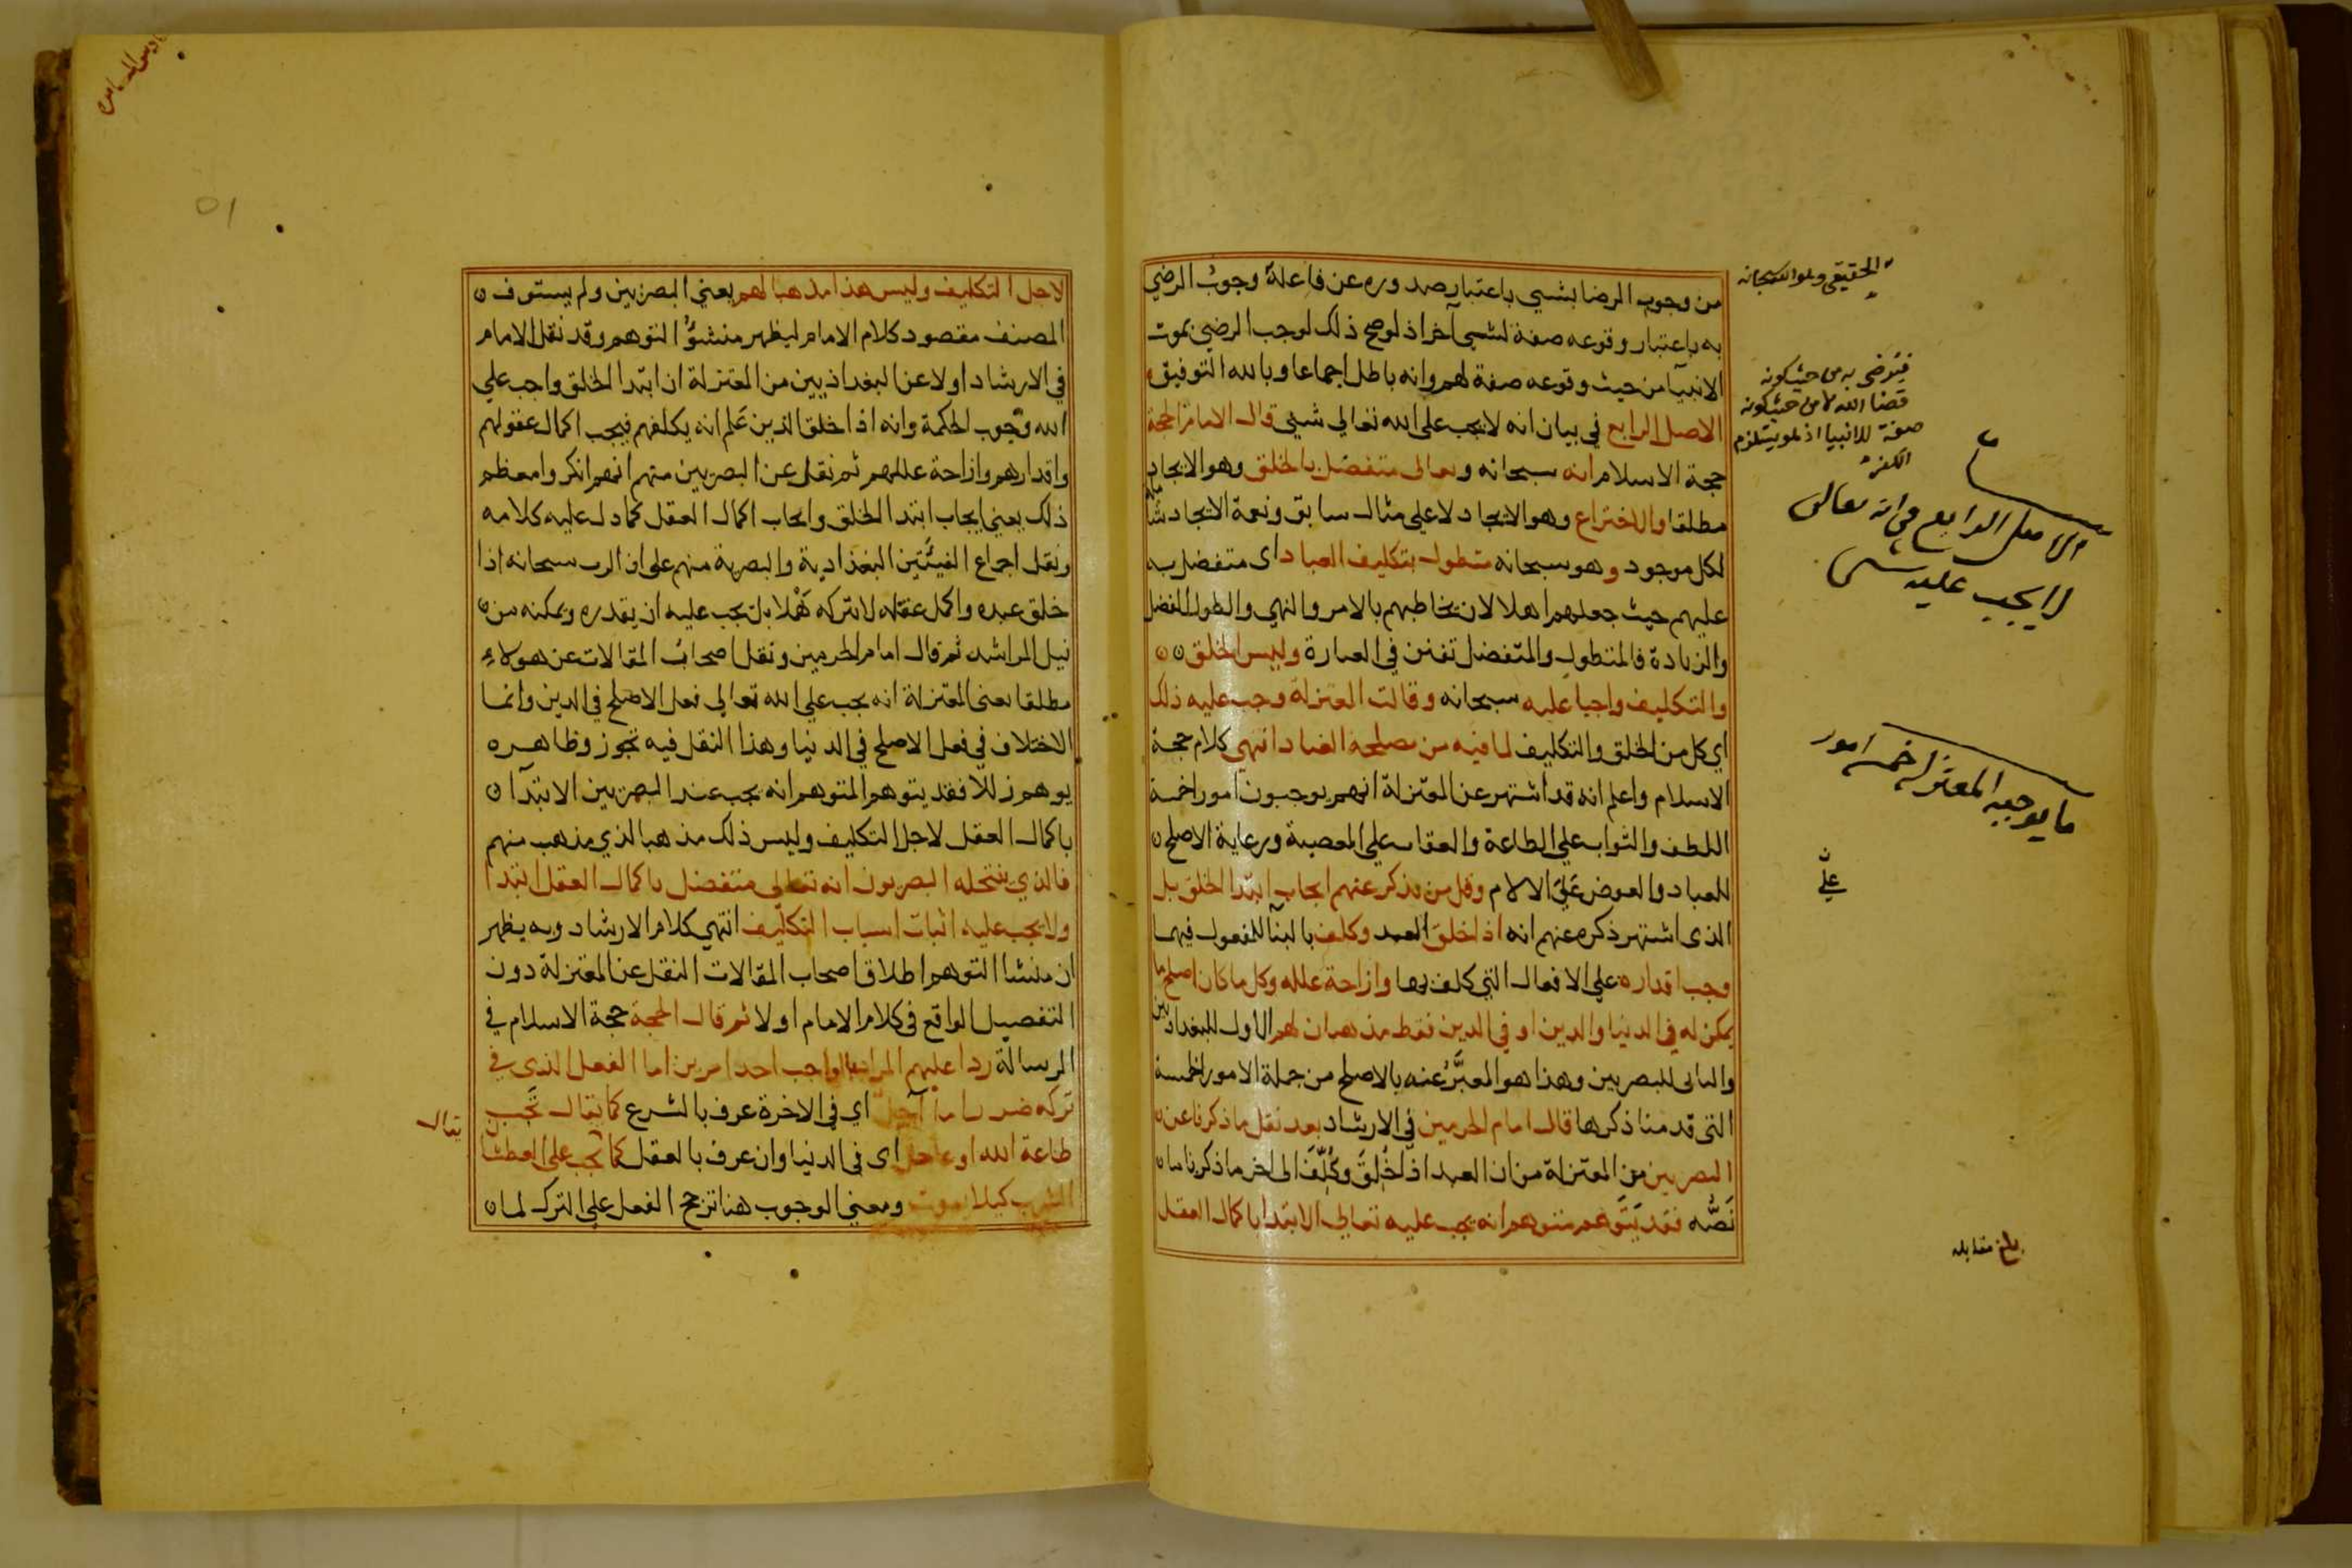 من وجوب الرضا بشيي باعتبار صدوره عن فاعلة وجوب الرضي
به باعتبار وقوعه صفة لشيي آخر اذ لوصح ذلك لوجب الرضي بموت
الانبيآ من حيث وقوعه صفة لهم وانه باطل اجماعا وبالله التوفيق
الاصل الرابع في بيان انه لا يجب على الله تعالي شيئ قال الامام الحجة
حجة الاسلام انه سبحانه وتعالى متفضل بالخلق وهو الايجاد
مطلقا والاختراع وهو الايجاد لا على مثال سابق ونعمة الايجاد
لكل موجود وهو سبحانه متطول بتكليف العباد اى متفضل به
عليهم حيث جعلهم اهلا لان يخاطبهم بالامر والنهي والطول الفضل
والزيادة فالمتطول والمتفضل تفنن في العبارة وليس الخلق
والتكليف واجبا عليه سبحانه وقالت المعتزلة وجب عليه ذلك
اي كل من الخلق والتكليف لما فيه من مصلحة العباد انتهى كلام حجة
الاسلام واعلم انه قد اشتهر عن المعتزلة انهم يوجبون امورا خمسة
اللطف والثواب على الطاعة والعقاب على المعصية ورعاية الاصلح
للعباد والعوض عَلَى الالام وقل من يذكر عنهم ايجاب ابتدا الخلق بل
الذى اشتهر ذكره عنهم انه اذا خلق العبد وكلف بالبنآ للمفعول فيهما
وجب اقداره على الافعال التي كلف بها وازاحة علله وكل ما كان اصلح ما
يمكن له في الدنيا والدين او في الدين فقط مذهبان لهم الاول للبغداديين
والثانى للبصريين وهذا هو المعبَّرُ عنه بالاصلح من جملة الامور الخمسة
التى قدمنا ذكرها قال امام الحرمين في الارشاد بعد نقل ما ذكرنا عن
البصريين من المعتزلة من ان العبد اذا خُلِقَ وكُلِّفَ الى اخر ما ذكرنا ما
نَصُّه فقد يَتَوهم متوهم انه يجب عليه تعالى الابتدا باكمال العقل
الحقيقي وهو الله سبحانه
فيترضى به من حيث كونه
قضا الله لا من حيث كونه
صفة للانبيا اذ هو يستلزم
الكفر
الاصل الرابع في انه تعالى
لا يجب عليه شي
ما يوجبه المعتزله خمسه امور
على
بلغ مقابله
لاجل التكليف وليس هذا مذهبا لهم يعني البصريين ولم يستوف
المصنف مقصود كلام الامام ليظهر منشؤُ التوهم وقد نقل الامام
في الارشاد اولا عن البغداذيين من المعتزلة ان ابتدا الخلق واجب علي
الله وجوب الحكمة وانه اذا خلق الذين عَلم انه يكلفهم فيجب اكمال عقولهم
واقدارهم وازاحة عللهم ثم نقل عن البصريين منهم انهم انكروا معظم
ذلك يعني ايجاب ابتدا الخلق وايجاب اكمال العقل كما دل عليه كلامه
ونقل اجماع الفئتين البغذادية والبصرية منهم على ان الرب سبحانه اذا
خلق عبده واكمل عقله لا يتركه هَملا بل يجب عليه ان يقدره ويمكنه من
نيل المراشد ثم قال امام الحرمين ونقل اصحابُ المقالات عن هولاءِ
مطلقا يعنى المعتزلة انه يجب علي الله تعالى فعل الاصلح في الدين وانما
الاختلاف في فعل الاصلح في الدنيا وهذا النقل فيه تجوز وظاهره
يوهم زللا فقد يتوهم المتوهم انه يجب عند البصريين الابتدآ
باكمال العقل لاجل التكليف وليس ذلك مذهبا لذي مذهب منهم
فالذي ينتحله البصريون انه تعالى متفضل باكمال العقل ابتدا
ولا يجب عليه اثبات اسباب التكليف انتهى كلام الارشاد وبه يظهر
ان منشا التوهم اطلاق اصحاب المقالات النقل عن المعتزلة دون
التفصيل الواقع فى كلام الامام اولا ثم قال الحجة حجة الاسلام في
الرسالة ردا عليهم المراد بالواجب احد امرين اما الفعل الذى في
تركه ضرر اما آجل اي في الاخرة عرف بالشرع كما يقال تجب
طاعة الله او عاجل اى فى الدنيا وان عرف بالعقل كما يجب على العطشان
الشرب كيلا يموت ومعني الوجوب هنا ترجح الفعل على الترك لما
يقال
٥١